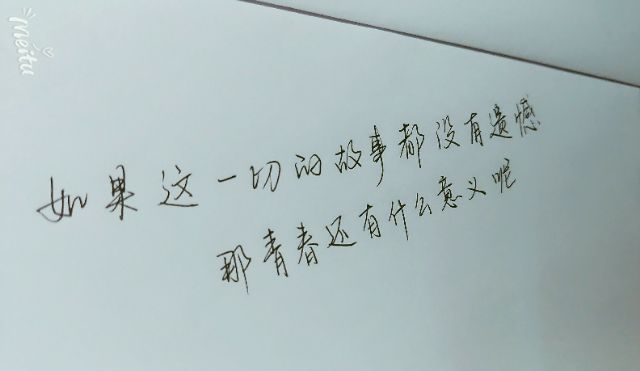 Meitu
如果这一切的故事都没有遗憾
那青春还有什么意义呢